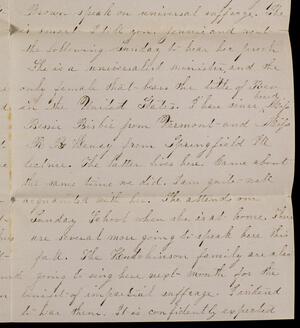 Brown speak on universal suffrage. She
is smart I tell you Jennie and went
the following Sunday to hear her preach
She is a universalist minister, and the
only female that bears the title of Rev
in the United States. I have since, heard Miss
Bessie Bisbie from Vermont and Miss
from Springfield
lecture. The latter lives here. Came about
the same time we did. I am quite well
acquainted with her. She attends our
Sunday School when she is at home. There
are several more going to speak here this
fall. The Hutchinson family are also
going to sing here next month for the
benefit of impartial suffrage. I intend
to hear them. It is confidently expected